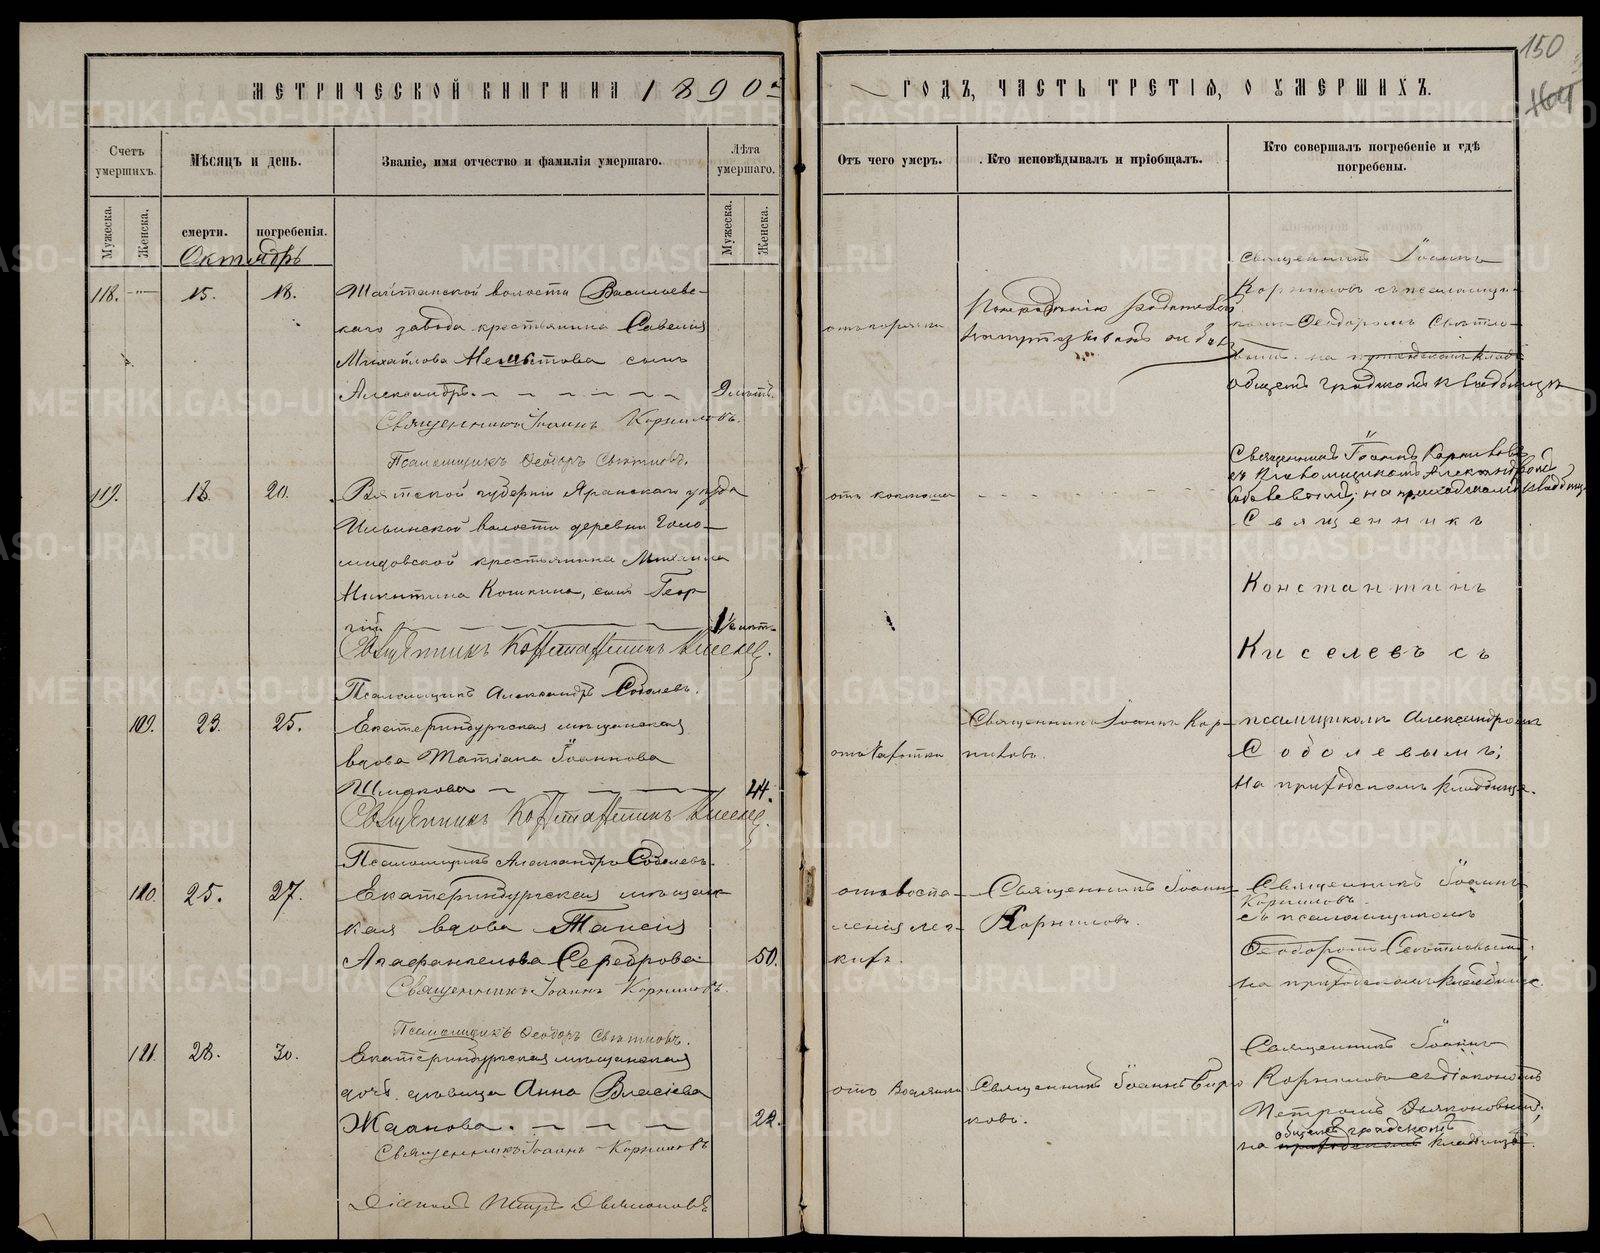 150
164
МЕТРИЧЕСКОЙ КНИГИ НА 1890й
ГОДЪ, ЧАСТЬ ТРЕТІЯ, О УМЕРШИХЪ.
Счетъ умершихъ.
Мѣсяцъ и день.
Званіе, имя отчество и фамилія умершаго.
Лѣта умершаго.
Отъ чего умеръ.
Кто исповѣдывалъ и пріобщалъ.
Кто совершалъ погребеніе и гдѣ погребены.
Мужеска.
Женска.
смерти.
погребенія.
Мужеска.
Женска.
Октябрь
118.
15.
18.
Шайтанской волости Васильевс-
каго завода крестьянина Савелія
Михайлова сынъ
Александръ.
9 лѣтъ.
отъ горячки
Священникъ Іоаннъ
Корниловъ съ псаломщи-
комъ Ѳеодоромъ Свѣтло-
общемъ градскомъ кладбищѣ
Священникъ Іоаннъ Корниловъ.
Псаломщикъ Ѳеодоръ Свѣтловъ.
119.
18.
20.
Вятской губерніи Яранскаго уѣзда
Ильинской волости деревни
крестьянина Михаила
Никитина Кошкина, сынъ Геор-
гій
1½ лѣт.
отъ коклюша
Священникъ Іоаннъ Корниловъ
съ псаломщикомъ Александромъ
Соболевымъ; на приходскомъ кладбищѣ
Священникъ
Константинъ
Киселевъ съ
псаломщикомъ Александромъ
Соболевымъ;
на приходскомъ кладбищѣ.
Священникъ Константинъ Киселевъ.
Псаломщикъ Александръ Соболевъ.
109.
23.
25.
Екатеринбургская мѣщанская
вдова Татіана Іоаннова
44.
отъ чахотки
Священникъ Іоаннъ Кор-
ниловъ.
Священникъ Константинъ Киселевъ.
Псаломщикъ Александръ Соболевъ.
110.
25.
27.
Екатеринбургская мѣщанс-
кая вдова Таисія
Агафангелова Сереброва
50.
отъ воспа-
ленія лег-
кихъ.
Священникъ Іоаннъ
Корниловъ.
Священникъ Іоаннъ
Корниловъ
съ псаломщикомъ
Ѳеодоромъ Свѣтловымъ;
на приходскомъ кладбищѣ.
Священникъ Іоаннъ Корниловъ.
Псаломщикъ Ѳеодоръ Свѣтловъ.
111.
28.
30.
Екатеринбургская мѣщанская
дочь дѣвица Анна Власіева
Жданова.
22.
Священникъ Іоаннъ Бирю-
ковъ.
Священникъ Іоаннъ
Корниловъ съ діакономъ
Петромъ Дьяконовымъ;
на общемъ градскомъ
приходскомъ кладбищѣ.
Священникъ Іоаннъ Корниловъ
Діаконъ Петръ Дьяконовъ
METRIKI.GASO-URAL.RU